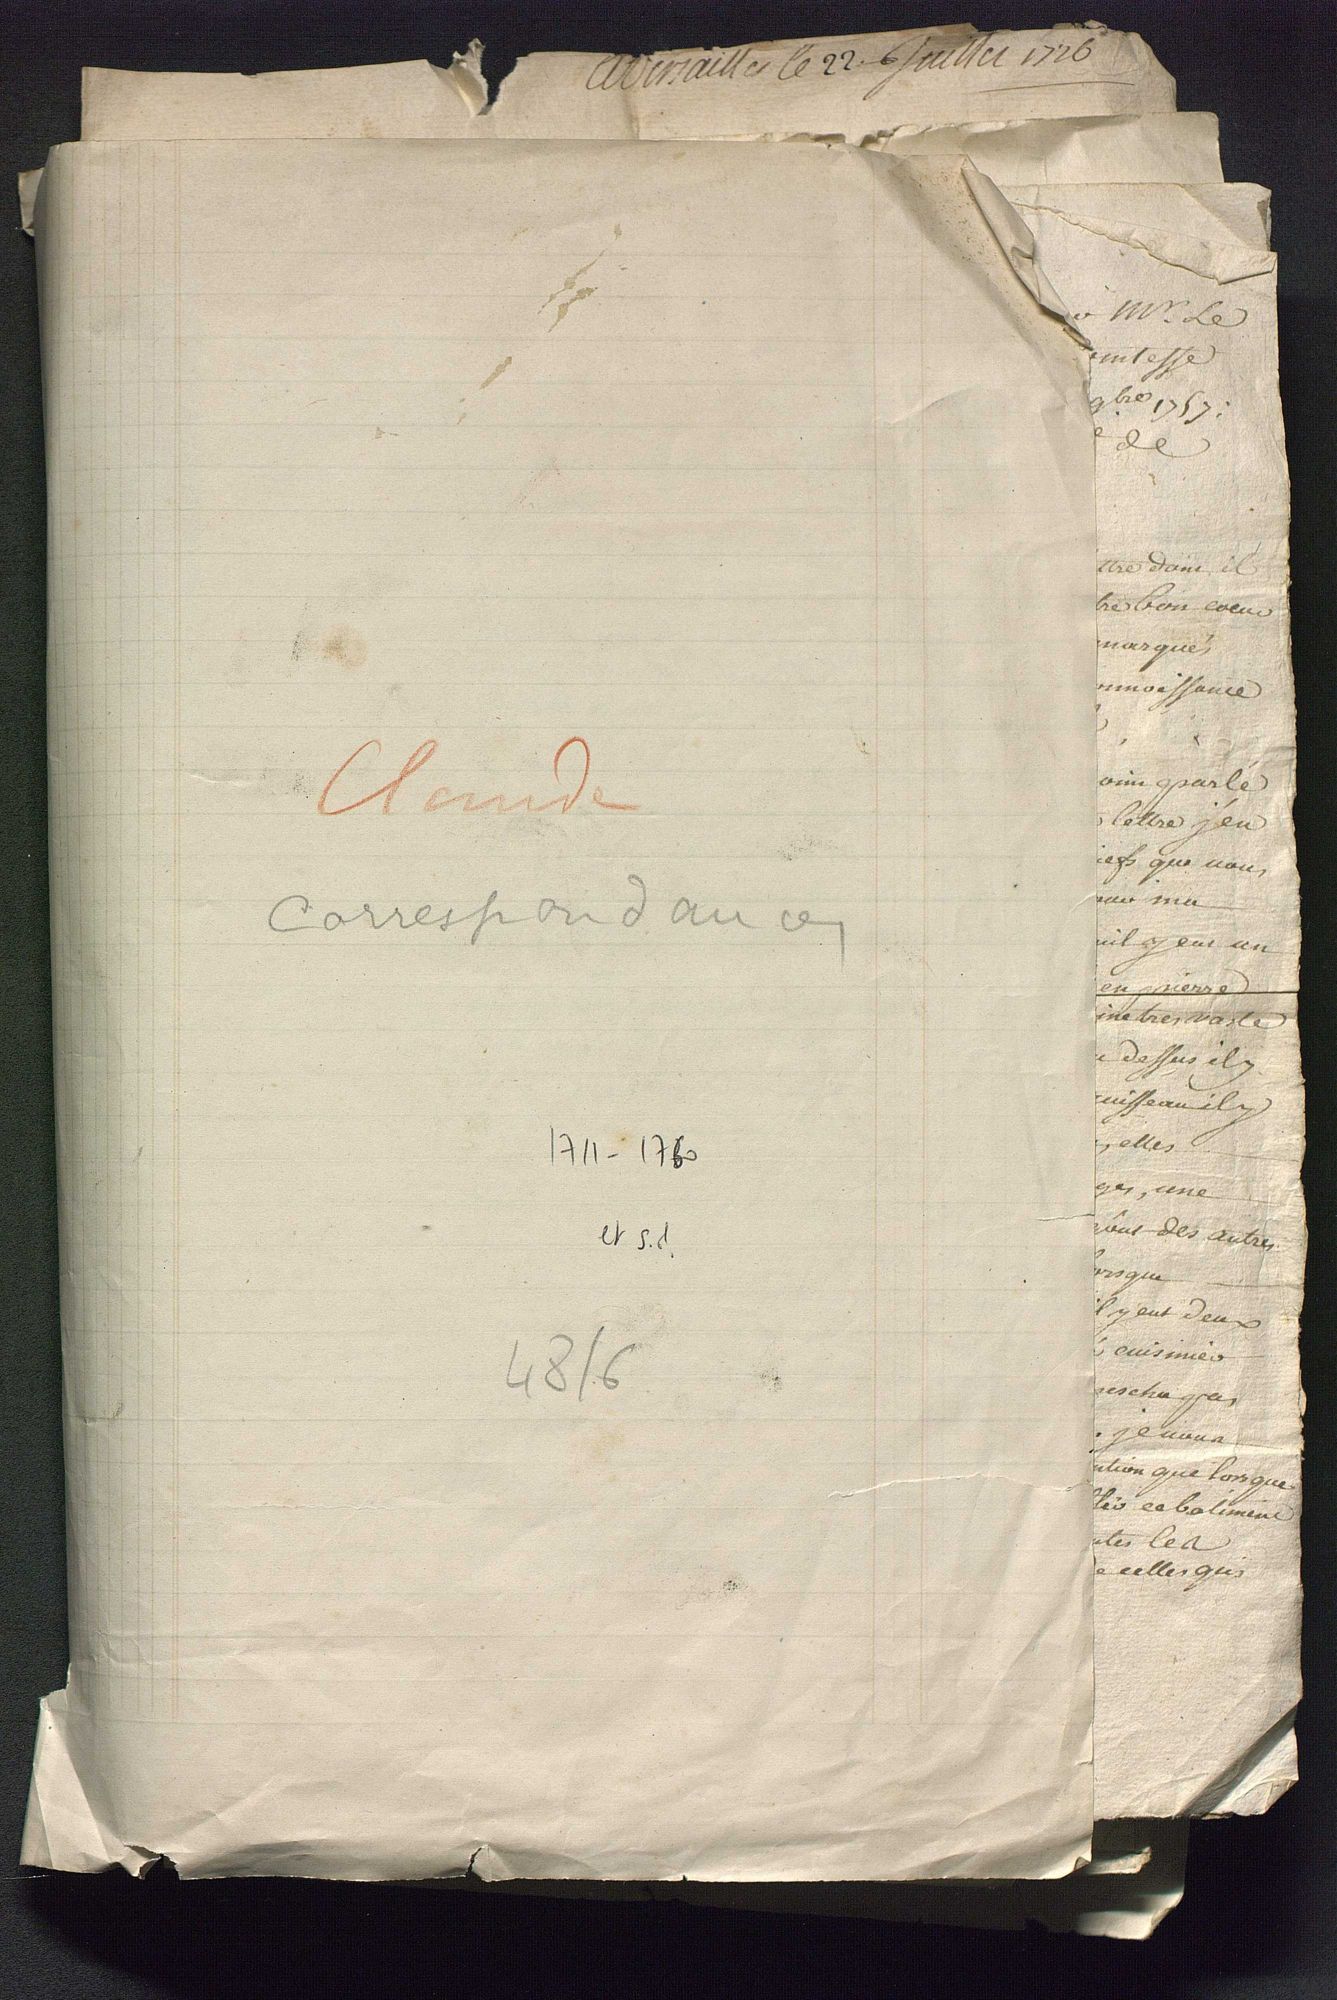 A Versailles le 22. Juillet 1726
Claude
Correspondances
1711 - 1760
et s.d.
48/6
Mr. Le
omtesse
9bre 1757:
de
ttre dont il
tre bon coeur
marqués
onnoissance
oint parlé
lettre j'en
iefs que vous
ma
uil y eut un
en pierre
ine tres vaste
dessus il y
uisseau il y
elles
ges, une
des autres
orsque
il y eut deux
cuisinier
pas
je vous
ntion que lorsque
ce batiment
utes les
e celles qui